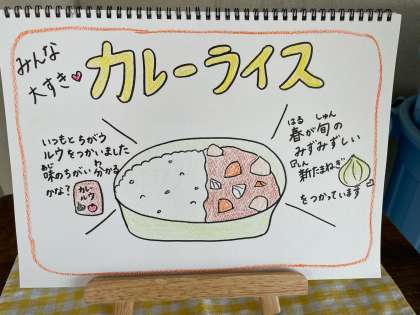 みんな
大すき
カレーライス
いつもとちがう
ルウをつかいました
あじ わ
味のちがい分かる
かな?
カレー
ルウ
はる しゅん
春が旬の
みずみずしい
しん
新たまねぎ
をつかっています